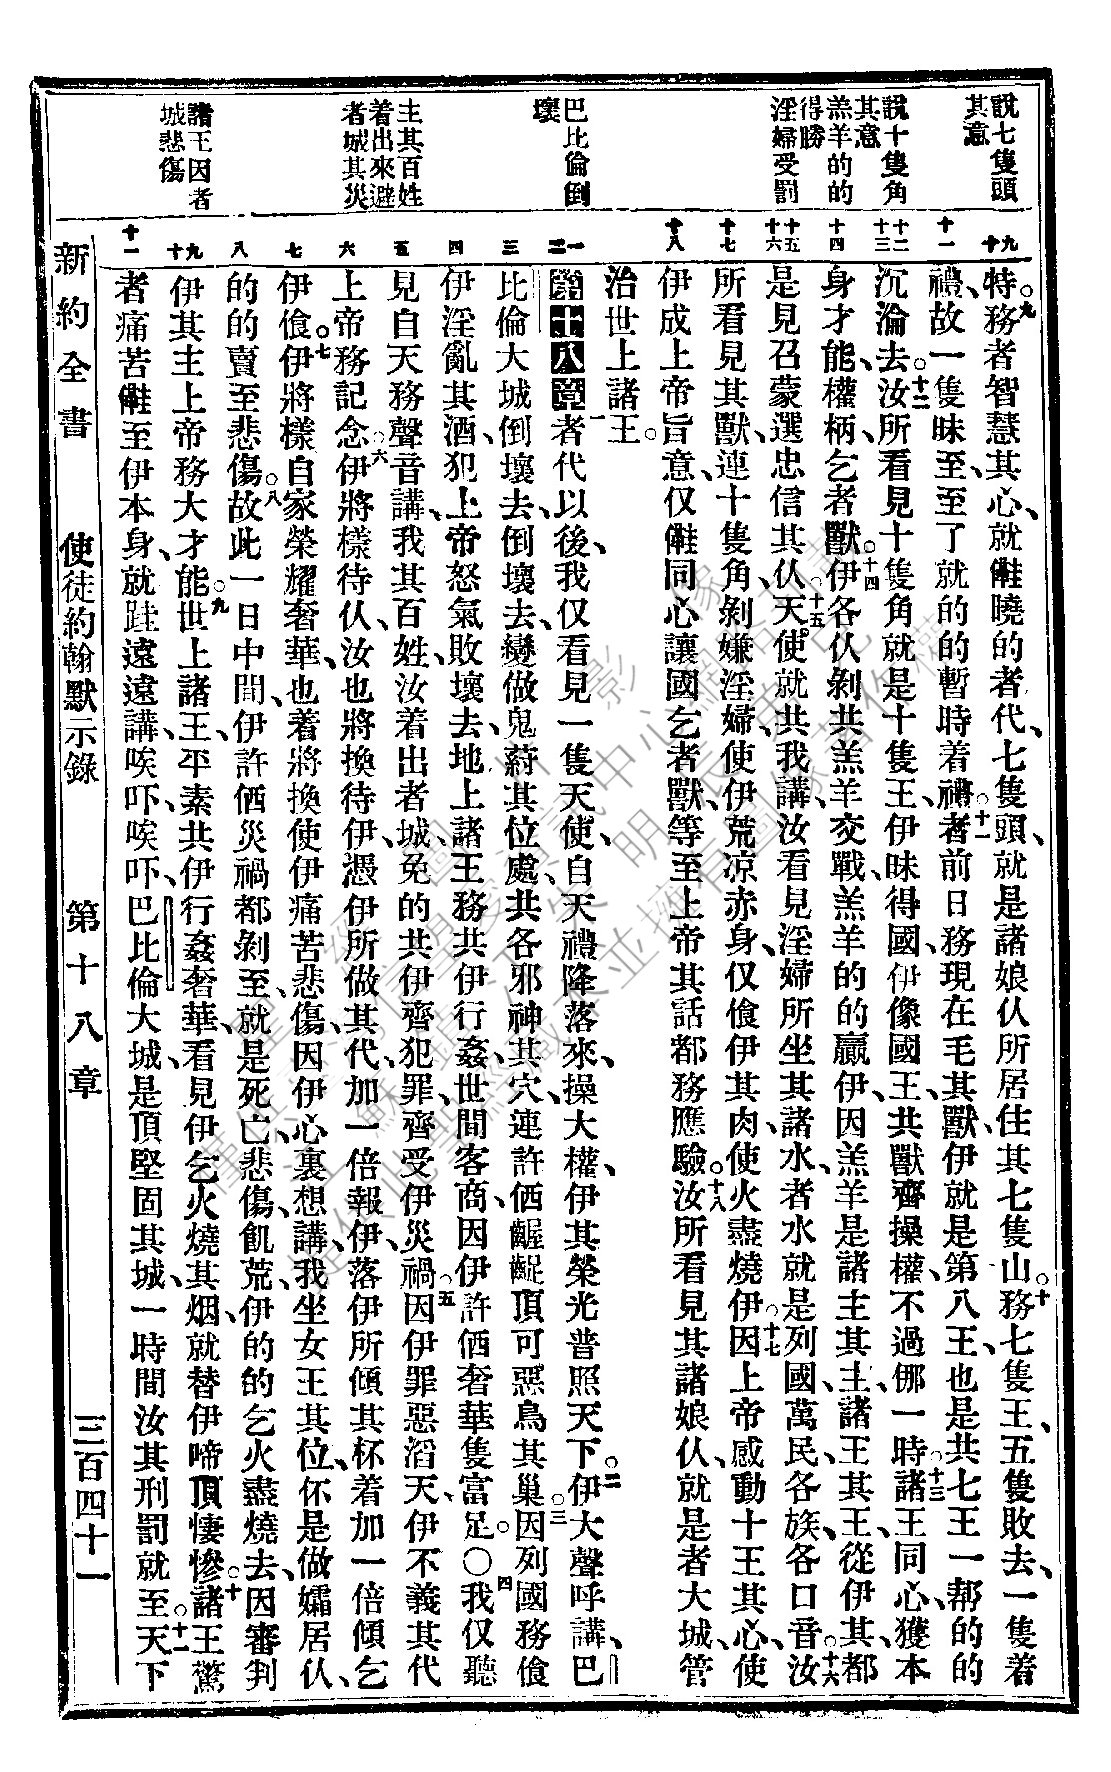 說七隻頭
其意
說十隻角
其意
羔羊的的
得勝
淫婦受罰
巴比倫倒
壞
主其百姓
着出來避
者城其災
諸王因者
城悲傷
九 十 十一 十二 十三 十四 十五 十六 十七 十八 一 二 三 四 五 六 七 八 九 十 十一
特務者智慧其心、就儺曉的者代、七隻頭、就是諸娘仈所居住其七隻山。十務七隻王、五隻敗去、一隻着
禮、故一隻昧至、至了就的的暫時着禮。十一者前日務現在毛其獸、伊就是第八王、也是共七王一帮的的
沉淪去。十二汝所看見十隻角就是十隻王、伊昧得國、伊像國王、共獸齊操權、不過𠆧一時。十三諸王同心、獲本
身才能、權柄、乞者獸。十四伊各仈剝共羔羊交戰、羔羊的的贏伊、因羔羊是諸主其主、諸王其王、從伊其、都
是見召蒙選忠信其仈。十五天使就共我講、汝看見淫婦所坐其諸水、者水就是列國萬民各族、各口音。十六汝
所看見其獸、連十隻角、剝嫌淫婦、使伊荒凉赤身、仅飧伊其肉、使火盡燒伊。十七因上帝感動十王其心、使
伊成上帝旨意、仅儺同心讓國乞者獸、等至上帝其話都務應驗。十八汝所看見其諸娘仈、就是者大城、管
治世上諸王。
第十八章 一者代以後、我仅看見一隻天使、自天禮降落來、操大權、伊其榮光普照天下。二伊大聲呼講、巴
比倫大城倒壞去、倒壞去、變做鬼蔚其位處、共各邪神其穴、連許㑚齷齪頂可惡鳥其巢。三因列國務飧
伊淫亂其酒、犯上帝怒氣敗壞去、地上諸王務共伊行姦、世間客商、因伊許㑚奢華隻富足。○四我仅聽
見自天務聲音講、我其百姓、汝着出者城、免的共伊齊犯罪、齊受伊災禍。五因伊罪惡滔天、伊不義其代
上帝務記念。六伊將樣待仈、汝也將換待伊、憑伊所做其代、加一倍報伊、落伊所傾其杯、着加一倍傾乞
伊飧。七伊將樣自家榮耀奢華、也着將換使伊痛苦悲傷、因伊心裏想講、我坐女王其位、伓是做孀居仈、
的的賣至悲傷。八故此一日中間、伊許㑚災禍都剝至、就是死亡、悲傷、飢荒、伊的的乞火盡燒去、因審判
伊其主上帝務大才能。九世上諸王、平素共伊行姦奢華、看見伊乞火燒其烟、就替伊啼頂悽慘。十諸王驚
者痛苦儺至伊本身、就跬遠遠講、唉吓、唉吓、巴比倫大城、是頂堅固其城、一時間汝其刑罰就至。十一天下
新約全書 使徒約翰默示錄 第十八章 三百四十一